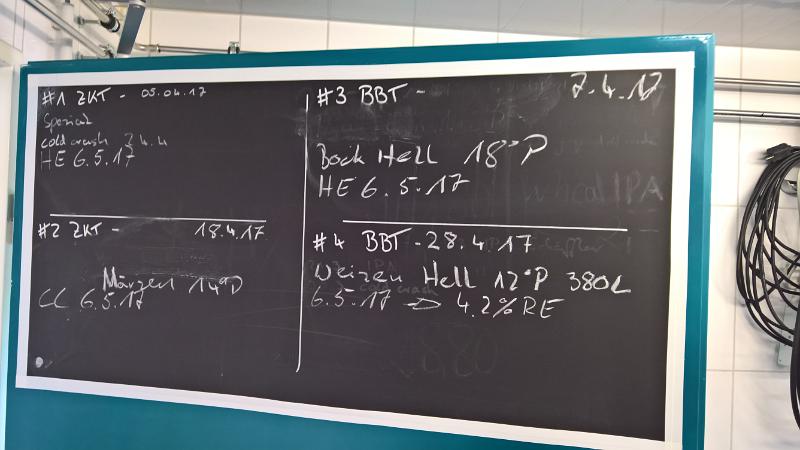 #1 ZKT - 05.04.17
Spezial
cold crash 7.4.4
HE 6.5.17
#2 ZKT - 18.4.17
Märzen 14°P
CC 6.5.17
#3 BBT - 7.4.17
Bock Hell 18°P
HE 6.5.17
#4 BBT - 28.4.17
Weizen Hell 12°P 380L
6.5.17 → 4.2% RE